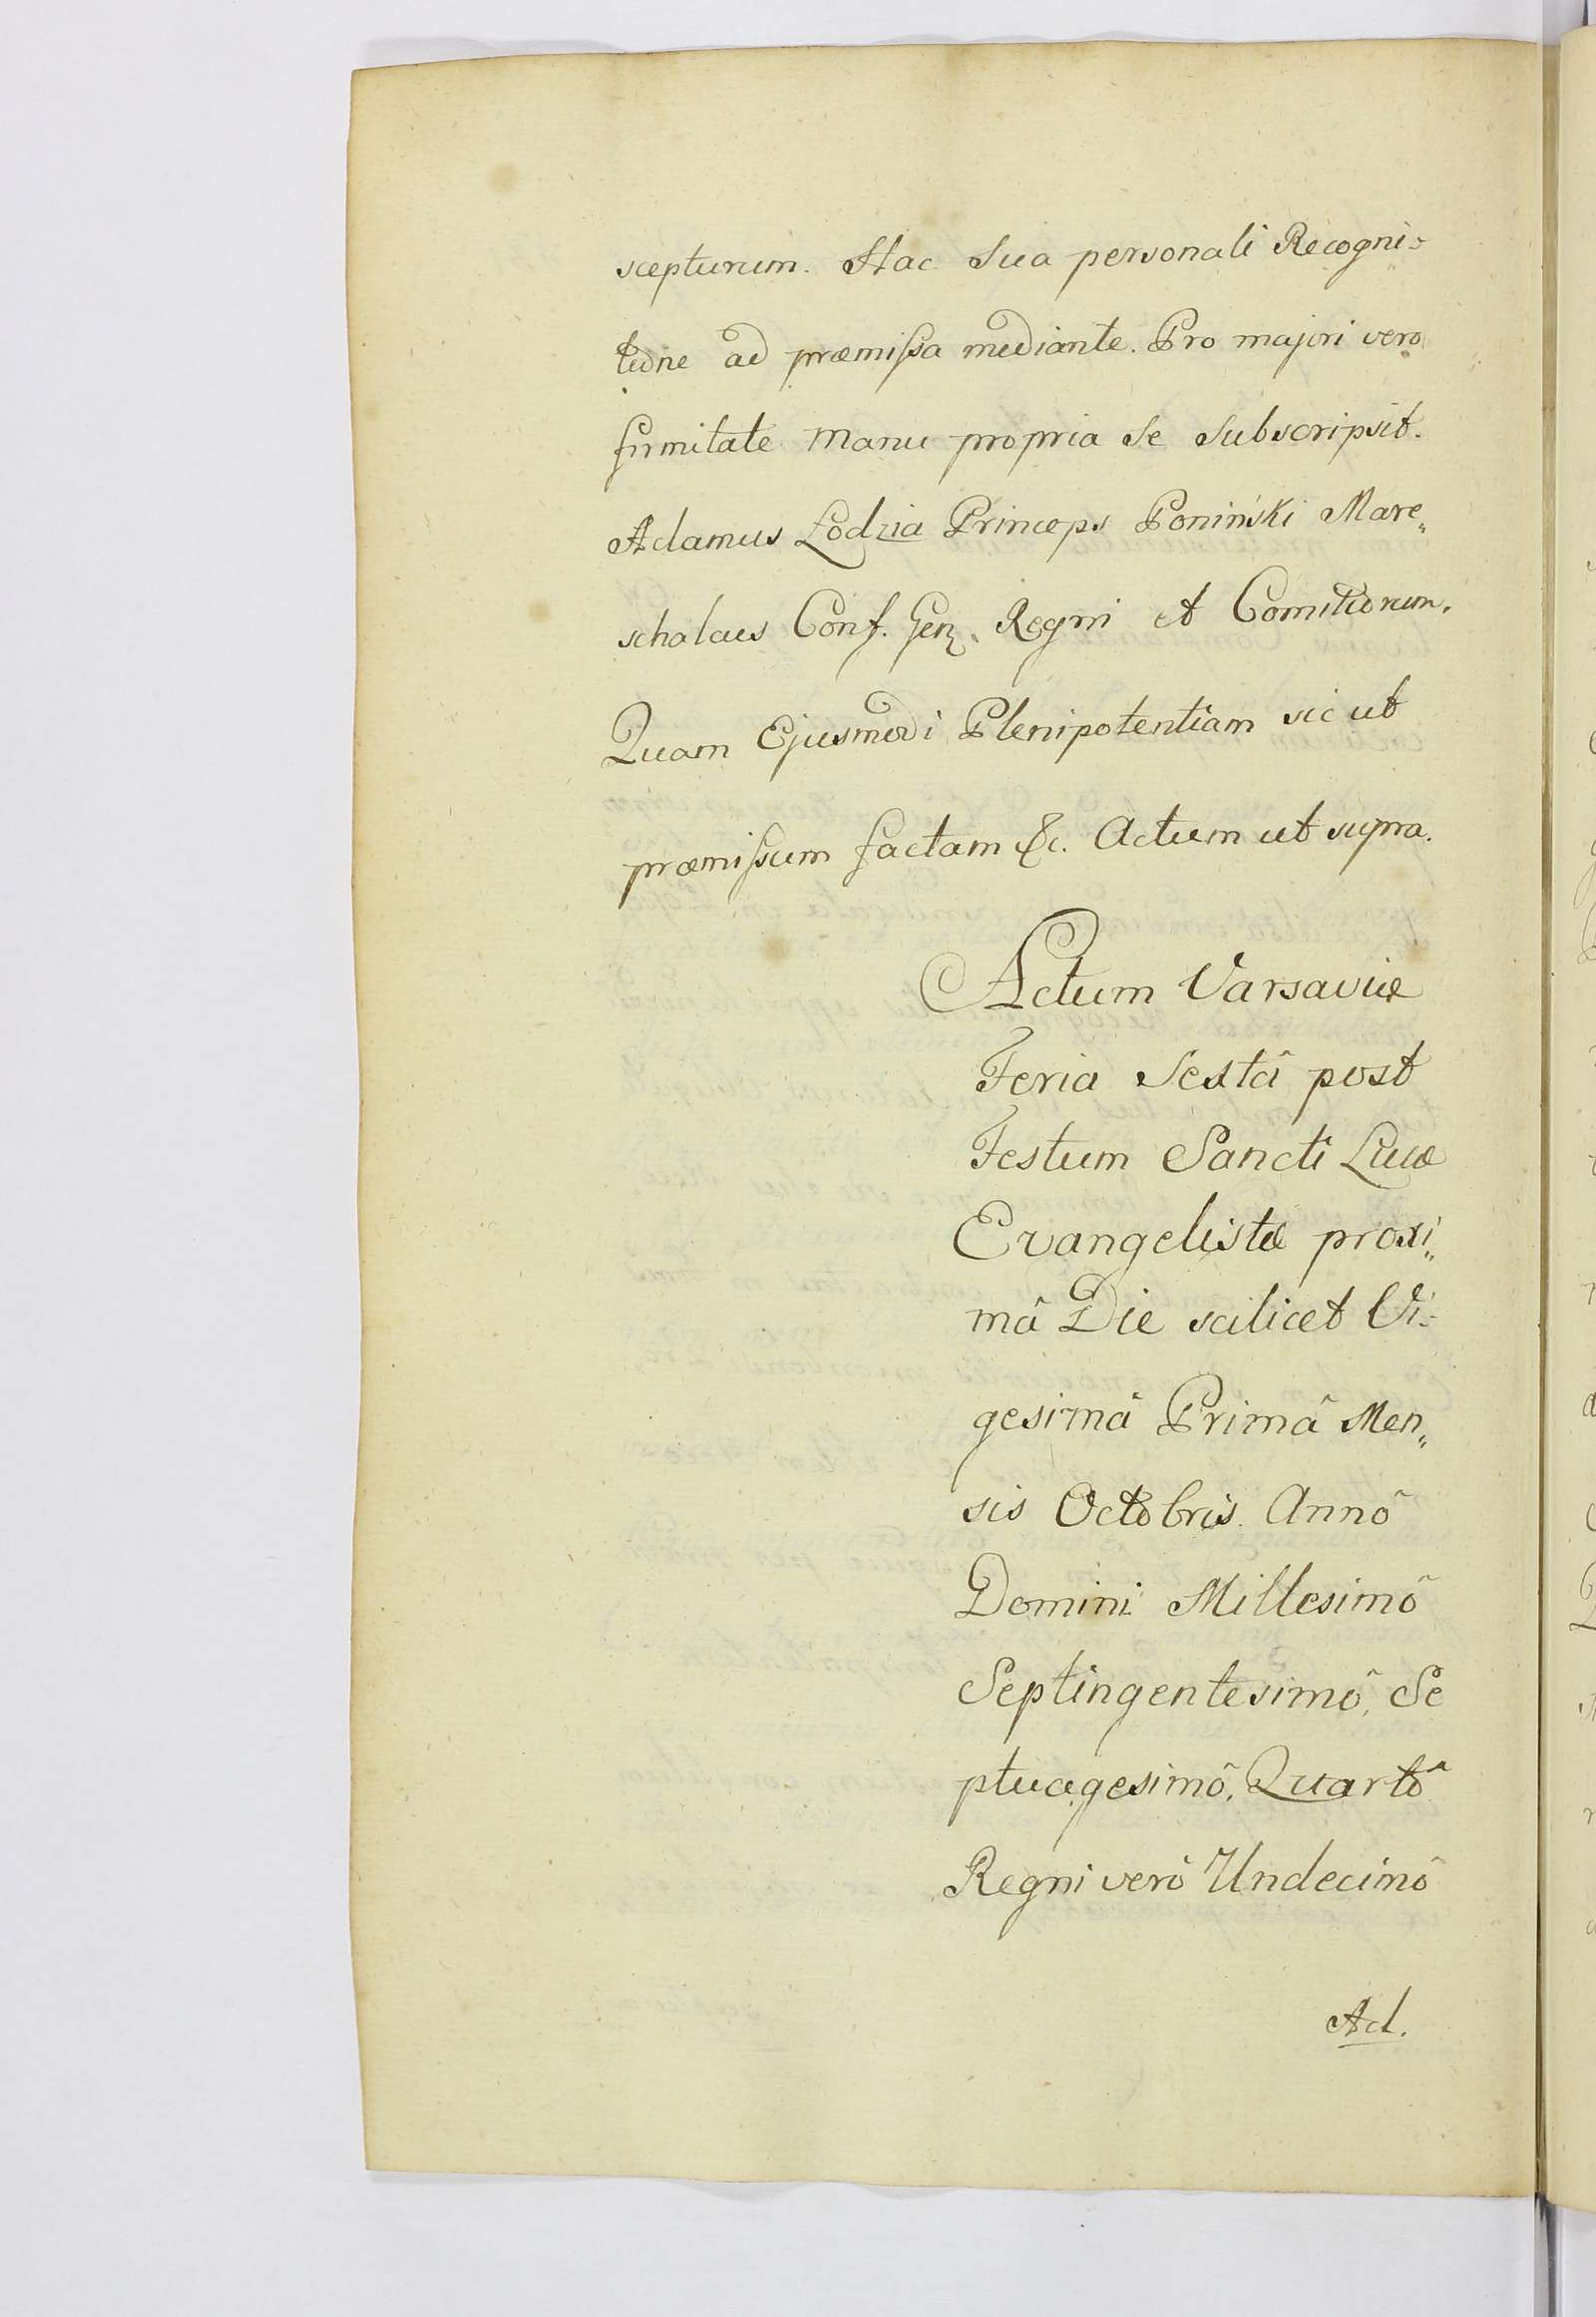 scepturum. Hac Sua personali Recogni-
tione ad præmissa mediante. Pro majori vero
firmitate manu propria Se Subscripsit.
Adamus Łodzia Princeps Poniński Mare„
schalcus Conf. Gen. Regni et Comitiorum.
Quam Ejusmodi Plenipotentiam sic ut
præmissum factam &c. Actum ut supra.
Actum Varsaviæ
Feria Sextâ post
Festum Sancti Lucæ
Evangelistæ proxi„
mâ Die scilicet Vi-
gesimâ Primâ Men„
sis Octobris Annô
Domini Millesimô
Septingentesimô, Se
ptuagesimô, Quartô
Regni verô Undecimô
Ad.